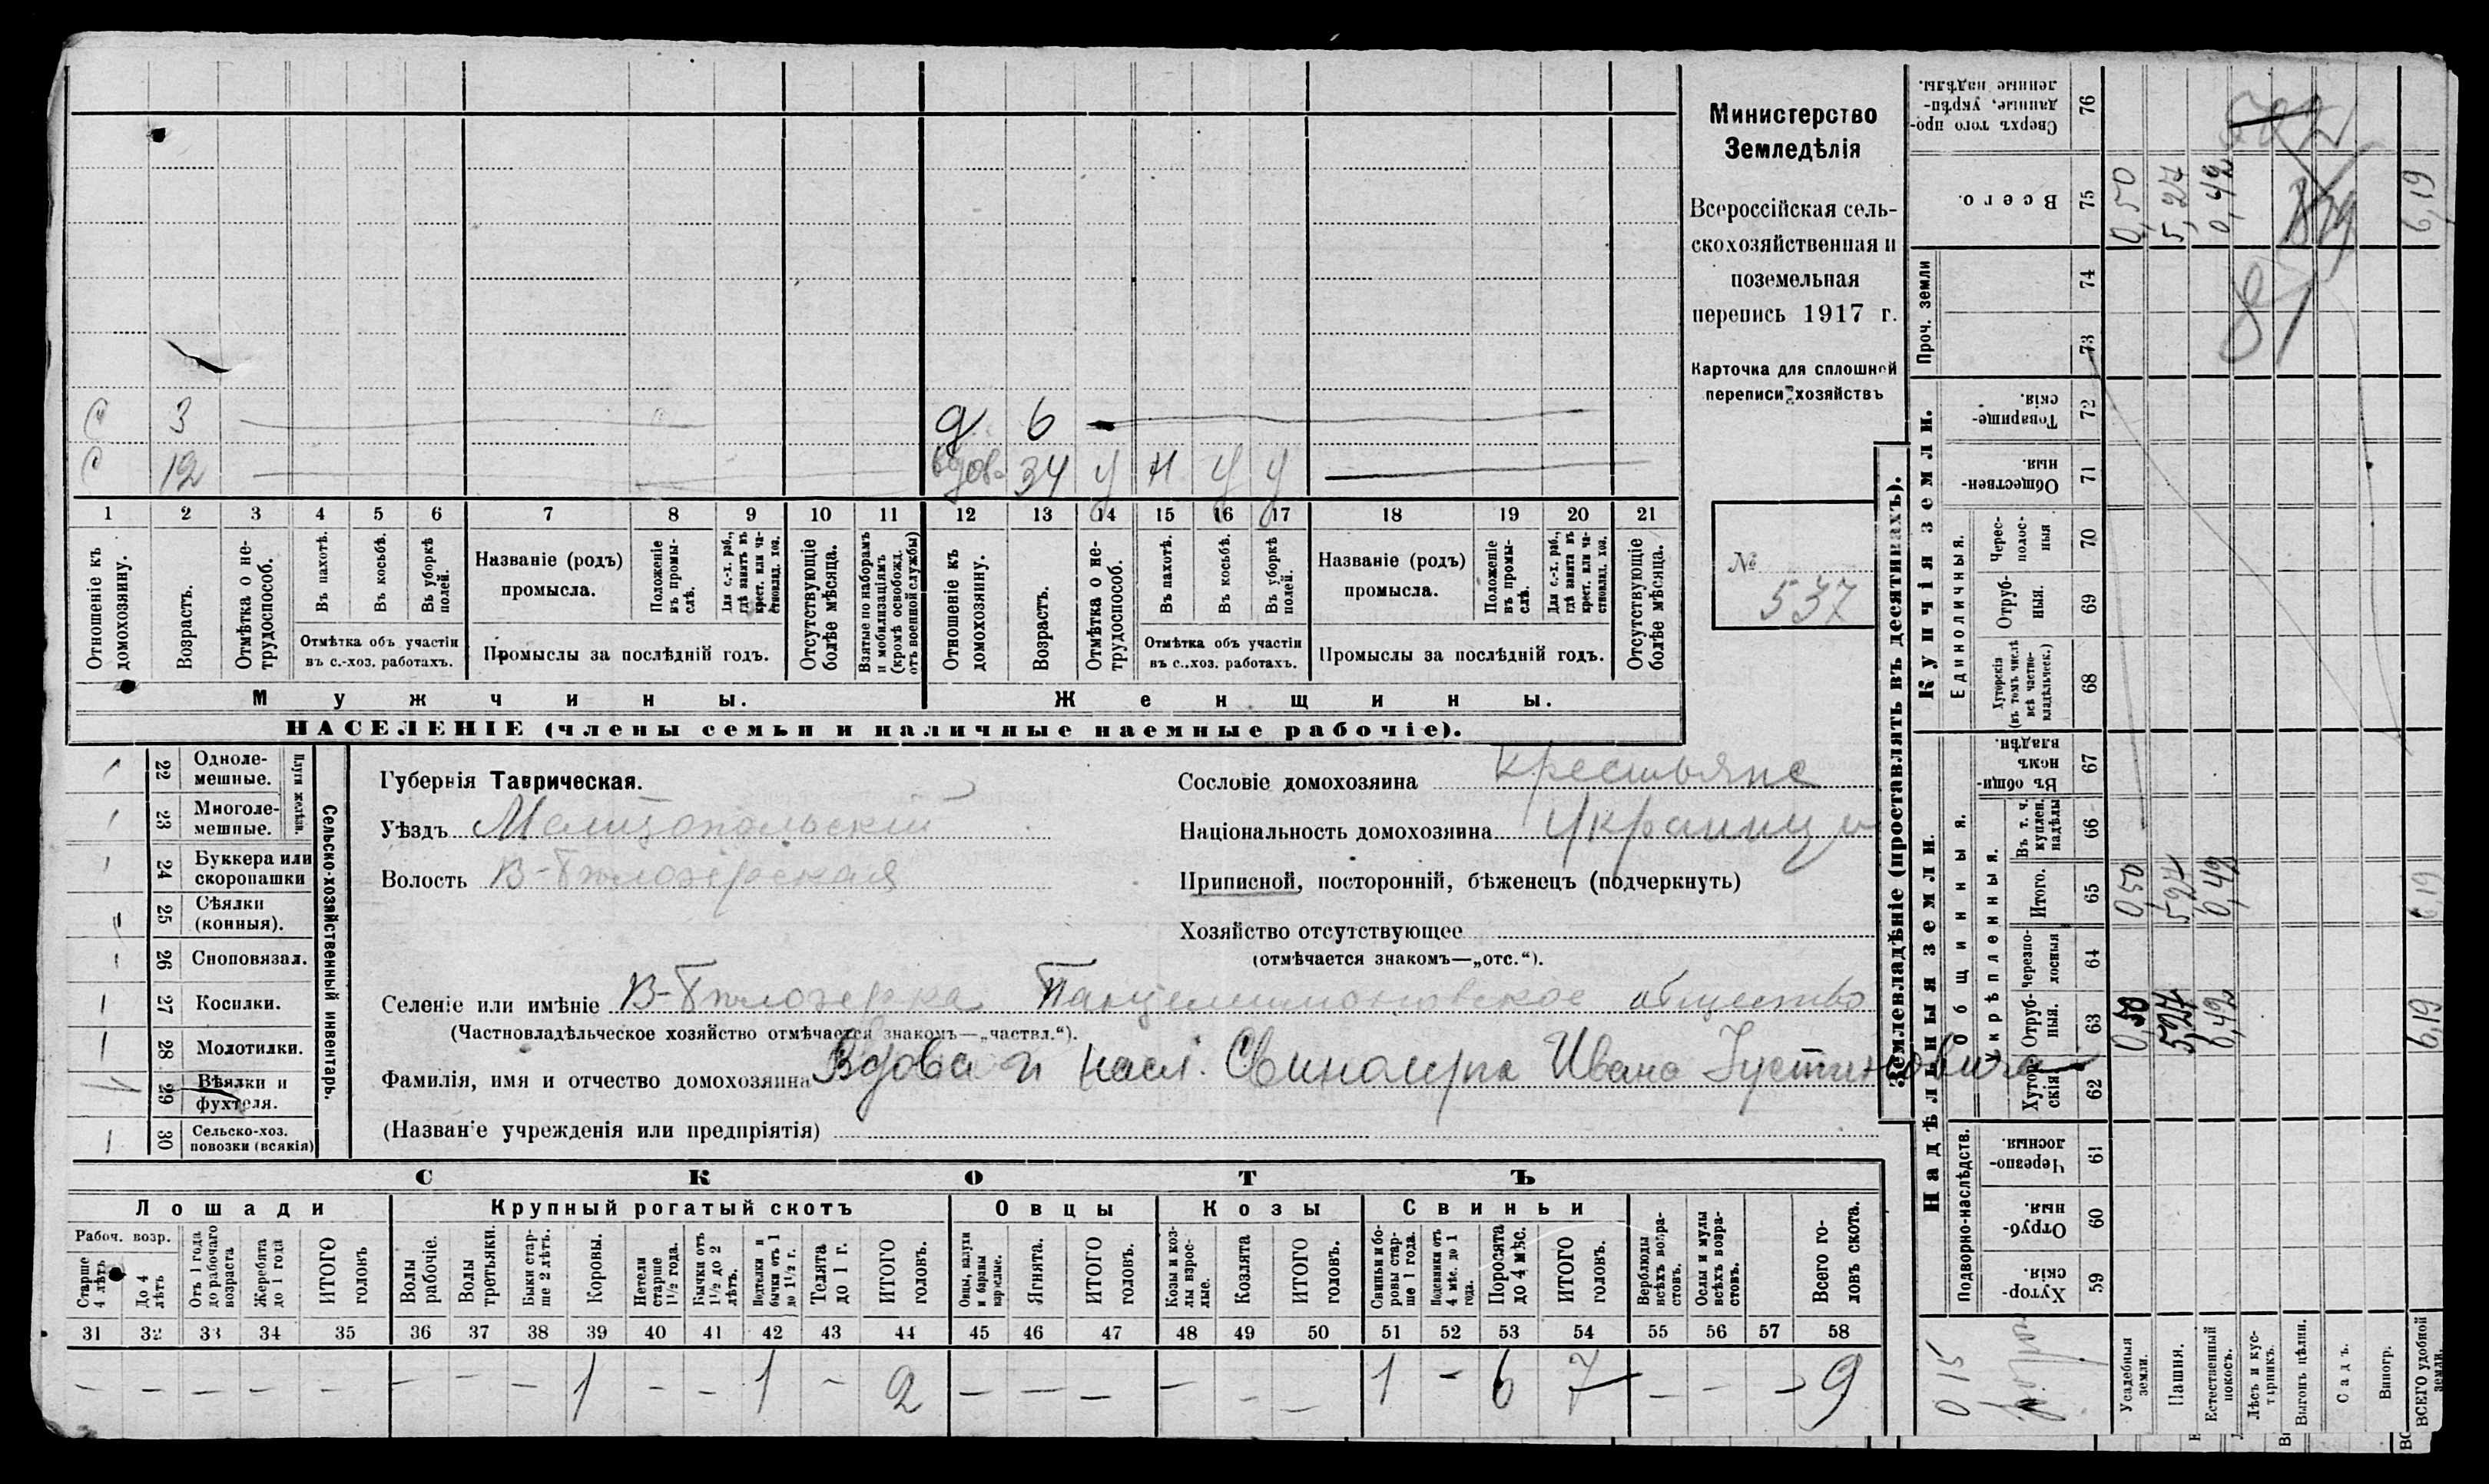 Министерство
Земледѣлія
Всероссійская сель-
скохозяйственная и
поземельная
перепись 1917 г.
Карточка для сплошной
переписи хозяйствъ
№
537
С 3 — д 6 —
С 12 — вдова 34 у н у у —
1 2 3 4 5 6 7 8 9 10 11 12 13 14 15 16 17 18 19 20 21
Отношеніе къ домохозяину.
Возрастъ.
Отмѣтка о не-трудоспособ.
Въ пахотѣ.
Въ косьбѣ.
Въ уборкѣ полей.
Отмѣтка объ участіи
въ с.-хоз. работахъ.
Названіе (родъ)
промысла.
Положеніе въ промы-слѣ.
Для с.-х. раб., гдѣ занятъ въ крест. или ча-стновлад. хоз.
Промыслы за послѣдній годъ.
Отсутствующіе болѣе мѣсяца.
Взятые по наборамъ и мобилизаціямъ (кромѣ освобожд. отъ военной службы)
Отношеніе къ домохозяину.
Возрастъ.
Отмѣтка о не-трудоспособ.
Въ пахотѣ.
Въ косьбѣ.
Въ уборкѣ полей.
Отмѣтка объ участіи
въ с.-хоз. работахъ.
Названіе (родъ)
промысла.
Положеніе въ промы-слѣ.
Для с.-х. раб., гдѣ занята въ крест. или ча-стновлад. хоз.
Промыслы за послѣдній годъ.
Отсутствующіе болѣе мѣсяца.
Мужчины. Женщины.
НАСЕЛЕНІЕ (члены семьи и наличные наемные рабочіе).
Сельско-хозяйственный инвентарь.
Плуги желѣзн.
22 Одноле-мешные.
23 Многоле-мешные.
24 Буккера или скоропашки
25 Сѣялки (конныя).
26 Сноповязал.
27 Косилки.
28 Молотилки.
29 Вѣялки и фухтеля.
30 Сельско-хоз. повозки (всякія)
Губернія Таврическая.
Уѣздъ Мелитопольскій
Волость В-Бѣлозерская
Сословіе домохозяина крестьяне
Національность домохозяина Украинцы
Приписной, посторонній, бѣженецъ (подчеркнуть)
Хозяйство отсутствующее
(отмѣчается знакомъ—„отс.“).
Селеніе или имѣніе В-Бѣлозерка Панцелимоновское общество
(Частновладѣльческое хозяйство отмѣчается знакомъ—„частвл.“).
Фамилія, имя и отчество домохозяина Вдова и насл. Ивана Іустиновича
(Названіе учрежденія или предпріятія)
СКОТЪ
Лошади Крупный рогатый скотъ Овцы Козы Свиньи
Рабоч. возр.
Старше 4 лѣтъ
До 4 лѣтъ
Отъ 1 года до рабочаго возраста
Жеребята до 1 года
ИТОГО головъ
Волы рабочіе.
Волы третьяки.
Быки стар-ше 2 лѣтъ.
Коровы.
Нетели старше 1½ года.
Бычки отъ 1½ до 2 лѣтъ.
Подтелки и бычки отъ 1 до 1½ г.
Телята до 1 г.
ИТОГО головъ.
Овцы, валухи и бараны взрослые.
Ягнята.
ИТОГО головъ.
Козы и коз-лы взрос-лые.
Козлята
ИТОГО головъ.
Свиньи и бо-ровы стар-ше 1 года.
Подсвинки отъ 4 мѣс. до 1 года.
Поросята до 4 мѣс.
ИТОГО головъ.
Верблюды всѣхъ возра-стовъ.
Ослы и мулы всѣхъ возра-стовъ.
Всего го-ловъ скота.
31 32 33 34 35 36 37 38 39 40 41 42 43 44 45 46 47 48 49 50 51 52 53 54 55 56 57 58
— — — — — — — — 1 — — 1 — 2 — — — — — — 1 - 6 7 — — — 9
Землевладѣніе (проставлять въ десятинахъ).
Надѣльныя земли. Купчія земли. Проч. земли
Подворно-наслѣдств.
Общинныя.
Укрѣпленныя.
Единоличныя.
Хутор-скія 59
Отруб-ныя. 60
Черезпо-лосныя. 61
Хутор-скія 62
Отруб-ныя. 63
Черезпо-лосныя 64
Итого. 65
Въ т. ч. куплен. надѣлы 66
Въ общи-номъ владѣн. 67
Хуторскія (въ томъ числѣ всѣ частно-владѣльческ.) 68
Отруб-ныя. 69
Черес-полос-ныя 70
Обществен-ныя. 71
Товарище-скія. 72
73
74
Всего. 75
Сверхъ того про-данные, укрѣп-ленные надѣлы. 76
Усадебныя земли. 0,50 0,50 0,50
Пашня. 5,27 5,27 5,27
Естественный покосъ. 0,42 0,42 0,42
Лѣсъ и кус-тарникъ.
Выгонъ цѣлин.
Садъ.
Виногр.
ВСЕГО удобной земли. 6,19 6,19 6,19
87
015